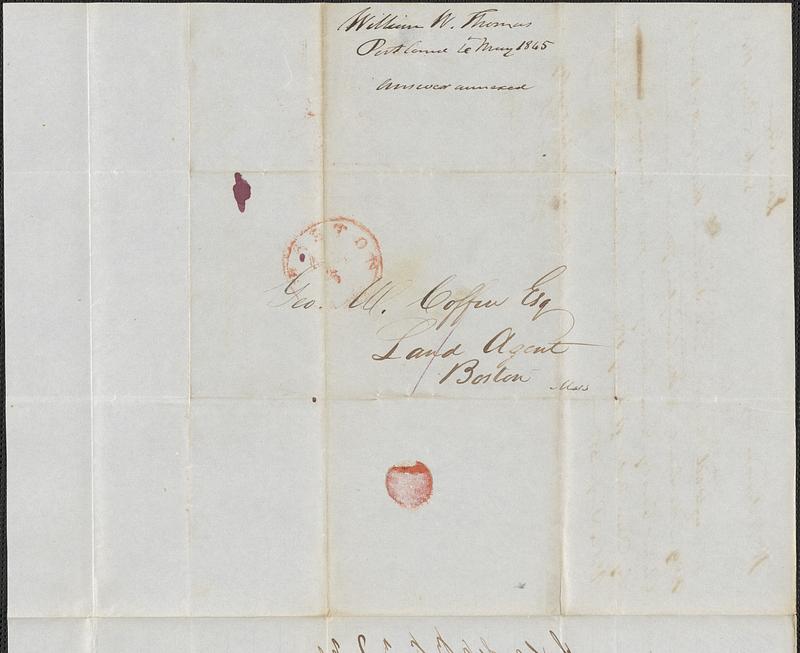 William W. Thomas
Portland 6 May 1845
Answer annexed
Geo. W. Coffin Esq
Land Agent
Boston
Mass